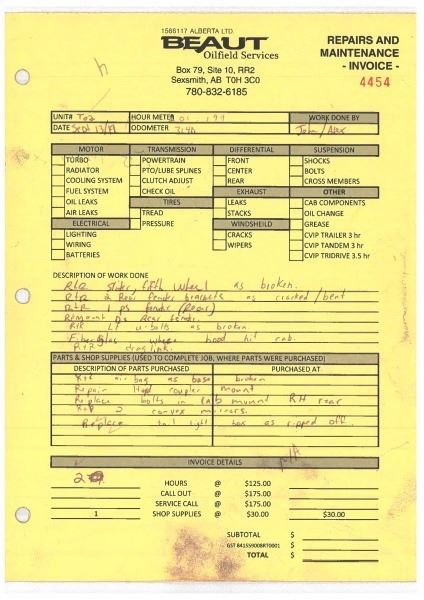 1566117 ALBERTA LTD.
BEAUT
Oilfield Services
Box 79, Site 10, RR2
Sexsmith, AB T0H 3C0
780-832-6185
REPAIRS AND
MAINTENANCE
- INVOICE -
4454
UNIT# HOUR METER WORK DONE BY
DATE Sept ODOMETER John / Alex
MOTOR TRANSMISSION DIFFERENTIAL SUSPENSION
TURBO POWERTRAIN FRONT SHOCKS
RADIATOR PTO/LUBE SPLINES CENTER BOLTS
COOLING SYSTEM CLUTCH ADJUST REAR CROSS MEMBERS
FUEL SYSTEM CHECK OIL EXHAUST OTHER
OIL LEAKS TIRES LEAKS CAB COMPONENTS
AIR LEAKS TREAD STACKS OIL CHANGE
ELECTRICAL PRESSURE WINDSHEILD GREASE
LIGHTING CRACKS CVIP TRAILER 3 hr
WIRING WIPERS CVIP TANDEM 3 hr
BATTERIES CVIP TRIDRIVE 3.5 hr
DESCRIPTION OF WORK DONE
R+R slider, fifth wheel as broken.
R+R 2 Rear fender brackets as cracked/bent
R+R 1 ps fender (Rear)
Remount Rear fender.
R+R LF u-bolts as broken.
Fiberglas where hood hit cab.
R+R drag link.
PARTS & SHOP SUPPLIES (USED TO COMPLETE JOB, WHERE PARTS WERE PURCHASED)
DESCRIPTION OF PARTS PURCHASED PURCHASED AT
R+R air bag as base broken
Repair coupler mount
Replace bolts in cab mount RH rear
R+R 2 convex mirrors.
Replace tail light box as ripped off.
INVOICE DETAILS
HOURS @ $125.00
CALL OUT @ $175.00
SERVICE CALL @ $175.00
1 SHOP SUPPLIES @ $30.00 $30.00
SUBTOTAL $
GST 841559008RT0001 $
TOTAL $